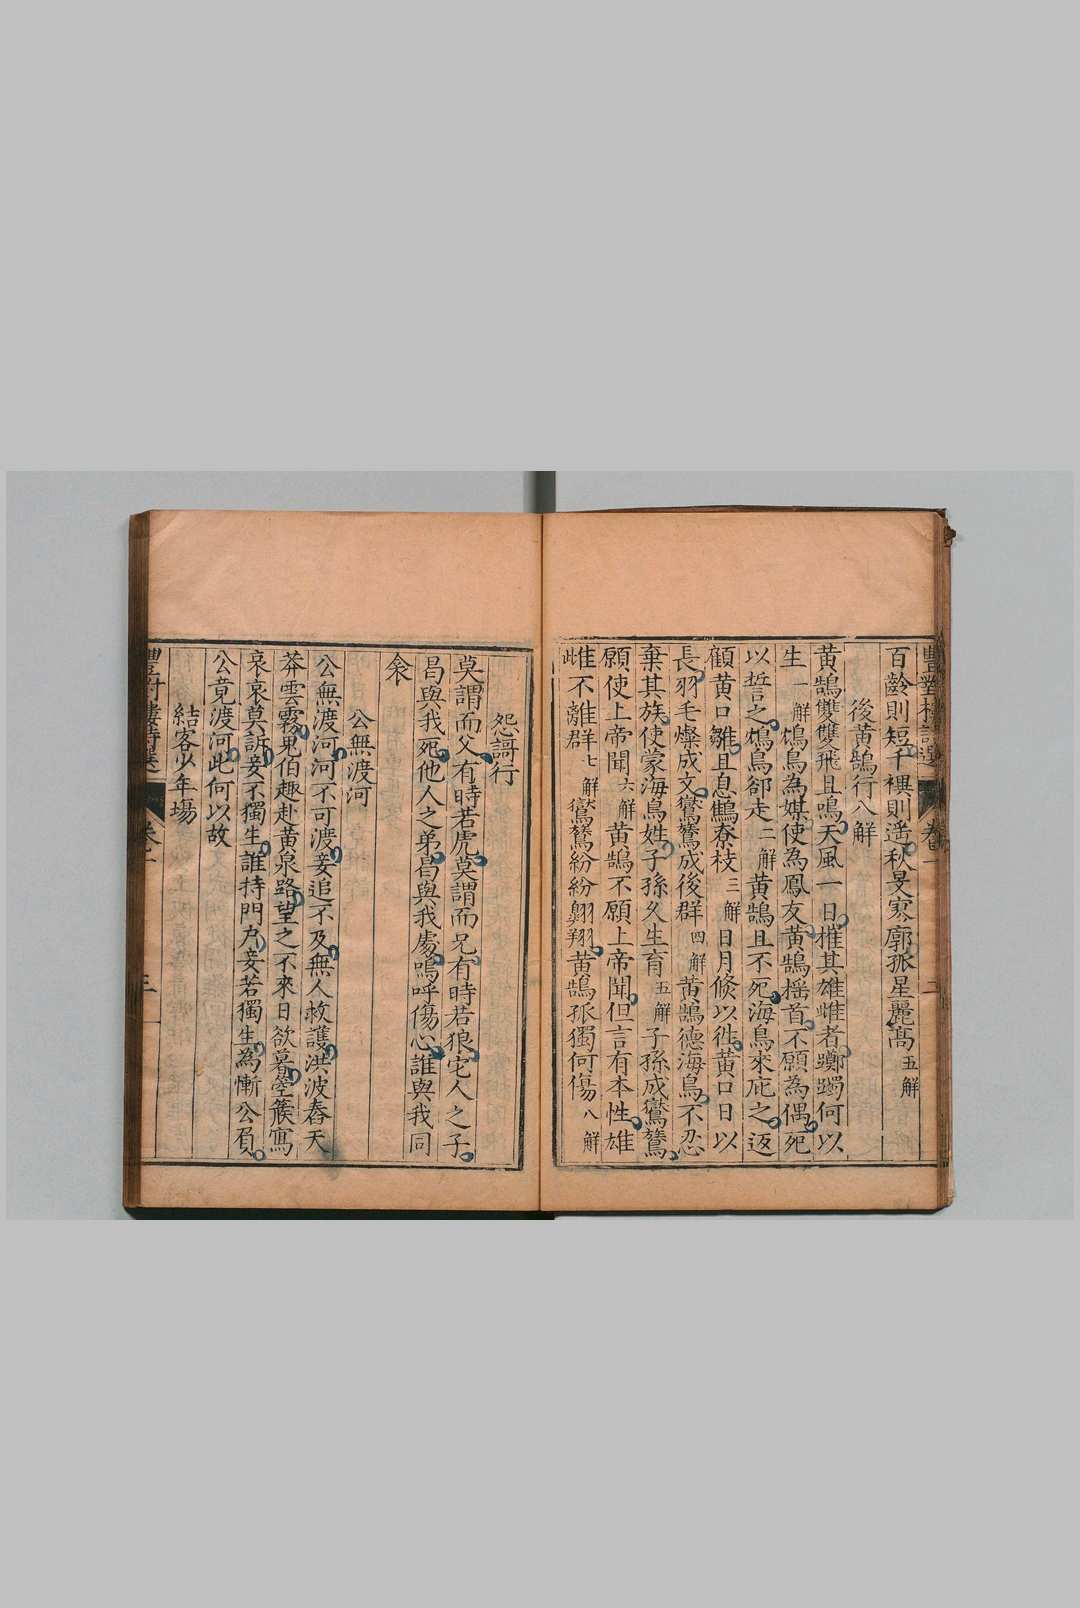 豐對樓詩選 卷一 三
百齡則短千禩則遥秋旻寥廓孤星麗高五解
後黄鵠行八解
黄鵠雙雙飛且鳴天風一日摧其雄雌者躑躅何以
生一解鴆鳥為媒使為鳳友黄鵠摇首不願為偶死
以誓之鴆鳥卻走二解黄鵠且不死海鳥來庇之返
顧黄口雛且息鷦鷯枝三解日月倐以徃黄口日以
長羽毛燦成文鸞鶩成後群四解黄鵠德海鳥不忍
棄其族使蒙海鳥姓子孫久生育五解子孫成鸞鶩
願使上帝聞六解黄鵠不願上帝聞但言有本性雄
雌不離群七解鸞鶩紛紛翺翔黄鵠孤獨何傷八解
此
怨謌行
莫謂而父有時若虎莫謂而兄有時若狼宅人之子
曷與我死他人之弟曷與我處嗚呼傷心誰與我同
衾
公無渡河
公無渡河河不可渡妾追不及無人救護洪波舂天
莽雲霧鬼伯趣赴黄泉路望之不來日欲暮箜篌寫
哀哀莫訴妾不獨生誰持門户妾若獨生為慚公負
公竟渡河此何以故
結客少年塲
豐對樓詩選 卷一 三